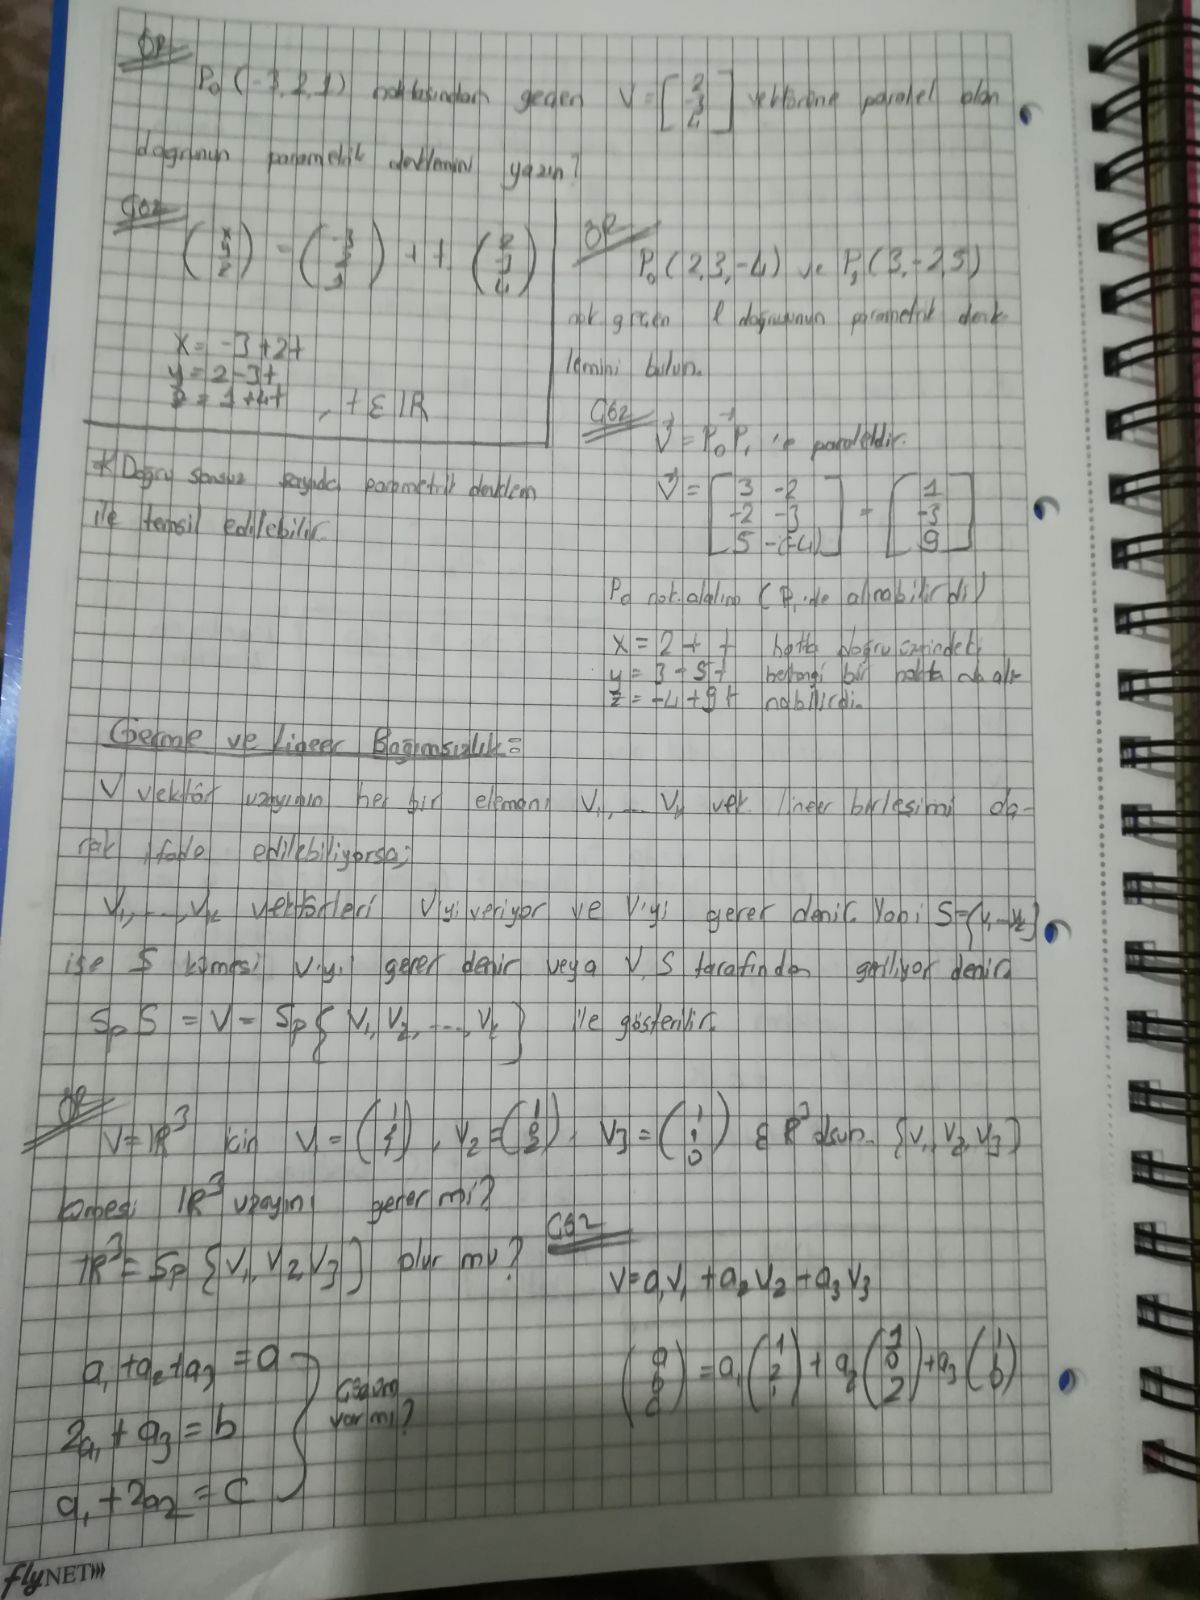 ÖR
P₀ (-3, 2, 1) noktasından geçen V = [2 -3 4] vektörüne paralel olan
doğrunun parametrik denklemini yazın?
ÇÖZ
(x y z) = (-3 2 1) + t (2 -3 4)
x = -3 + 2t
y = 2 - 3t
z = 1 + 4t , t ∈ IR
* Doğru sonsuz sayıda parametrik denklem
ile temsil edilebilir.
ÖR
P₀ (2, 3, -4) ve P₁ (3, -2, 5)
nok geçen l doğrusunun parametrik denk
lemini bulun.
ÇÖZ
V = P₀P₁ 'e paraleldir.
V = [3 -2 / -2 -3 / 5 -(-4)] = [1 / -3 / 9]
P₀ nok. alalım (P₁ 'de alınabilirdi)
x = 2 + t hatta doğru üzerindeki
y = 3 - 5t herhangi bir nokta da alı-
z = -4 + 9t nabilirdi.
Germe ve Lineer Bağımsızlık =
V vektör uzayının her bir elemanı V₁, ... Vₖ vek. lineer birleşimi ola-
rak ifade edilebiliyorsa;
V₁, ..., Vₖ vektörleri V'yi veriyor ve V'yi gerer denir. Yani S = {V₁ ... Vₖ}
ise S kümesi V'yi gerer denir veya V, S tarafından geriliyor denir
Sp S = V = Sp {V₁, V₂, ..., Vₖ} ile gösterilir.
ÖR
V = IR³ için V₁ = , V₂ = , V₃ = (1 1 0) ∈ R³ olsun. {V₁, V₂, V₃}
kümesi IR³ uzayını gerer mi?
IR³ = Sp {V₁, V₂, V₃} olur mu?
ÇÖZ
V = a₁V₁ + a₂V₂ + a₃V₃
(a b c) = a₁ (1 2 1) + a₂ (1 0 2) + a₃ (1 1 0)
a₁ + a₂ + a₃ = a
2a₁ + a₃ = b
a₁ + 2a₂ = c
Çözüm
var mı?
flyNET